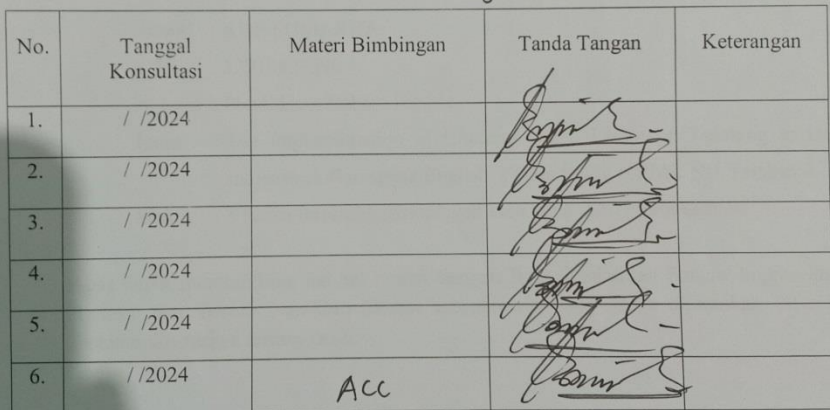 No. Tanggal Konsultasi Materi Bimbingan Tanda Tangan Keterangan
1. / /2024
2. / /2024
3. / /2024
4. / /2024
5. / /2024
6. / /2024 ACC